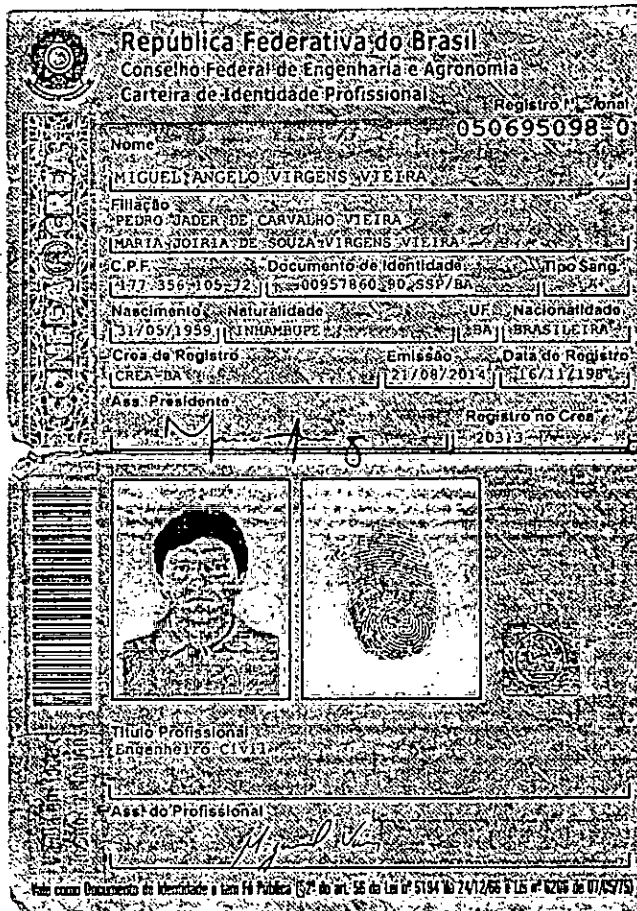 República Federativa do Brasil
Conselho Federal de Engenharia e Agronomia
Carteira de Identidade Profissional
Registro Nacional
050695098-0
Nome
MIGUEL ANGELO VIRGENS VIEIRA
Filiação
PEDRO JADER DE CARVALHO VIEIRA
MARIA JOIRIA DE SOUZA VIRGENS VIEIRA
C.P.F. Documento de Identidade Tipo Sang.
177 356 105 72 00957860 90 SSP/BA A+
Nascimento Naturalidade UF Nacionalidade
31/05/1959 INHAMBUPE BA BRASILEIRA
Crea de Registro Emissão Data de Registro
CREA-BA 21/08/2014 16/11/198
Ass. Presidente
Registro no Crea
20313
CONFEA CREA
Título Profissional
Engenheiro Civil
Ass. do Profissional
Vale como Documento de Identidade e tem Fé Pública (§2º do art. 56 da Lei nº 5194 de 24/12/66 e Lei nº 6206 de 07/05/75)